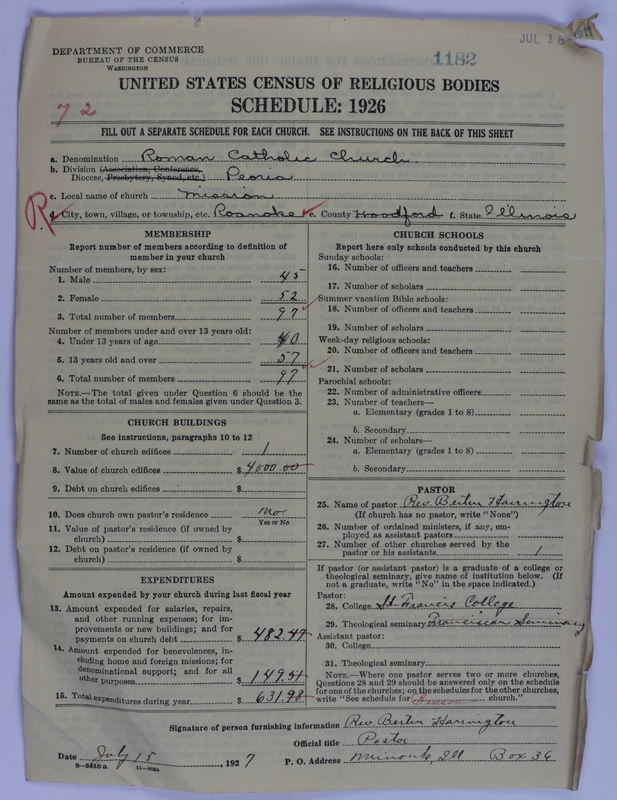 JUL 18 1927
DEPARTMENT OF COMMERCE
BUREAU OF THE CENSUS
WASHINGTON
1182
UNITED STATES CENSUS OF RELIGIOUS BODIES
72
SCHEDULE: 1926
FILL OUT A SEPARATE SCHEDULE FOR EACH CHURCH. SEE INSTRUCTIONS ON THE BACK OF THIS SHEET
a. Denomination Roman Catholic Church
b. Division (Association, Conference,
Diocese, Presbytery, Synod, etc.) Peoria
c. Local name of church Mission
R
d. City, town, village, or township, etc. Roanoke e. County Woodford f. State Illinois
MEMBERSHIP
Report number of members according to definition of
member in your church
Number of members, by sex:
1. Male 45
2. Female 52
3. Total number of members 97
Number of members under and over 13 years old:
4. Under 13 years of age 40
5. 13 years old and over 57
6. Total number of members 97
NOTE.—The total given under Question 6 should be the
same as the total of males and females given under Question 3.
CHURCH BUILDINGS
See instructions, paragraphs 10 to 12
7. Number of church edifices 1
8. Value of church edifices $ 4000.00
9. Debt on church edifices $
10. Does church own pastor's residence no
Yes or No
11. Value of pastor's residence (if owned by
church) $
12. Debt on pastor's residence (if owned by
church) $
EXPENDITURES
Amount expended by your church during last fiscal year
13. Amount expended for salaries, repairs,
and other running expenses; for im-
provements or new buildings; and for
payments on church debt $ 482.47
14. Amount expended for benevolences, in-
cluding home and foreign missions; for
denominational support; and for all
other purposes $ 149.51
15. Total expenditures during year $ 631.98
CHURCH SCHOOLS
Report here only schools conducted by this church
Sunday schools:
16. Number of officers and teachers
17. Number of scholars
Summer vacation Bible schools:
18. Number of officers and teachers
19. Number of scholars
Week-day religious schools:
20. Number of officers and teachers
21. Number of scholars
Parochial schools:
22. Number of administrative officers
23. Number of teachers—
a. Elementary (grades 1 to 8)
b. Secondary
24. Number of scholars—
a. Elementary (grades 1 to 8)
b. Secondary
PASTOR
25. Name of pastor Rev. Bertin Harrington
(If church has no pastor, write "None")
26. Number of ordained ministers, if any, em-
ployed as assistant pastors
27. Number of other churches served by the
pastor or his assistants 1
If pastor (or assistant pastor) is a graduate of a college or
theological seminary, give name of institution below. (If
not a graduate, write "No" in the space indicated.)
Pastor:
28. College St. Francis College
29. Theological seminary Franciscan Seminary
Assistant pastor:
30. College
31. Theological seminary
NOTE.—Where one pastor serves two or more churches,
Questions 28 and 29 should be answered only on the schedule
for one of the churches; on the schedules for the other churches,
write "See schedule for Benson church."
Signature of person furnishing information Rev. Bertin Harrington
Official title Pastor
Date July 15, 1927 P. O. Address Minonk, Ill Box 36
8—5516 a 11—9064